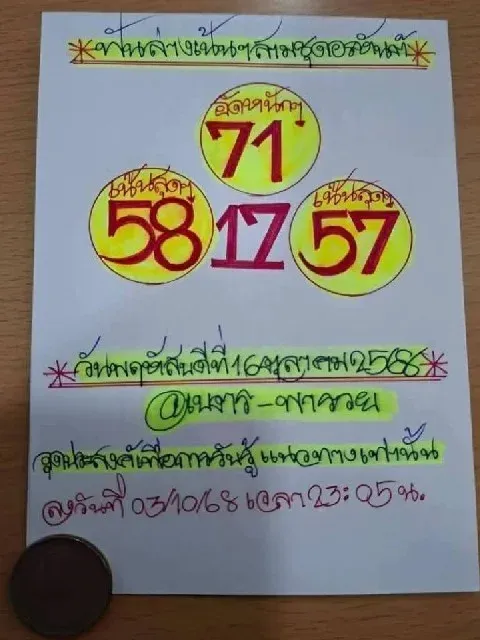 *ฟันล่างเน้นๆสามชุดอรหันต์*
จัดหนักๆ
71
เน้นสุดๆ
58
17
เน้นสุดๆ
57
*วันพฤหัสบดีที่16ตุลาคม2568*
-พารวย
จุดประสงค์เพื่อการรับรู้แนวทางเท่านั้น
ลงวันที่ 03/10/68 เวลา 23:05 น.